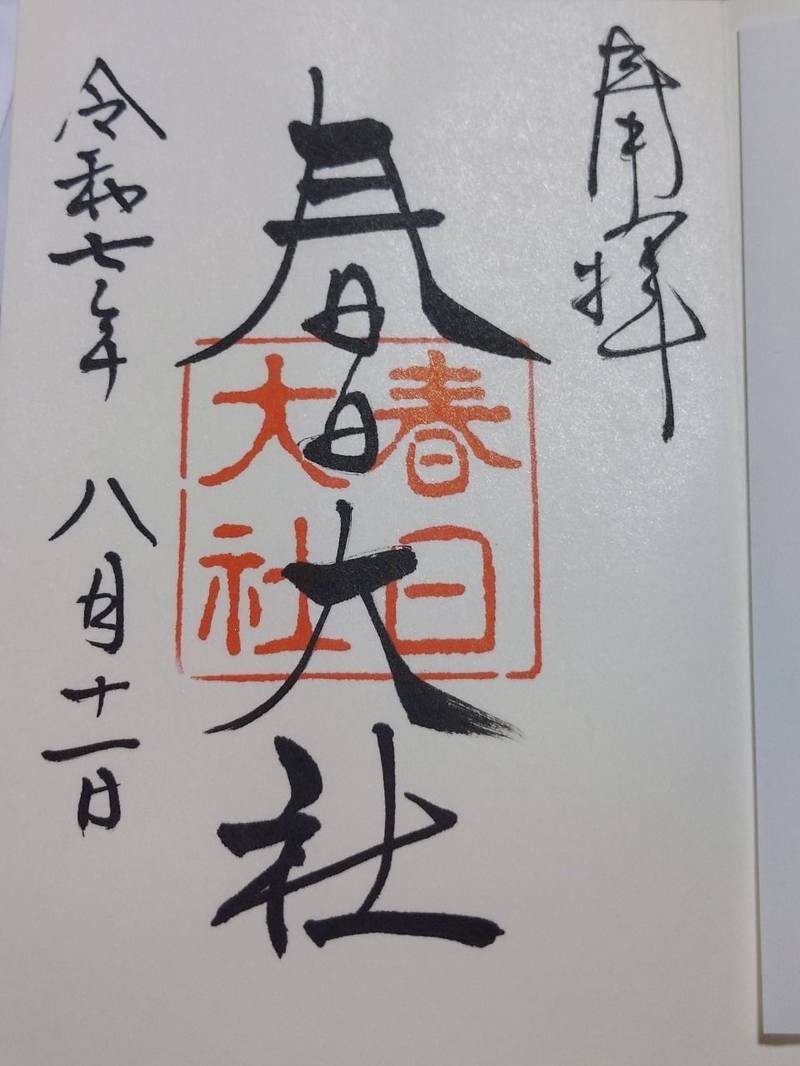 奉拝
春日大社
春日
大社
令和七年 八月十一日